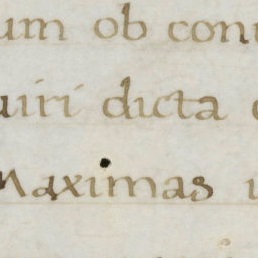 um ob con
uiri dicta
Maximas